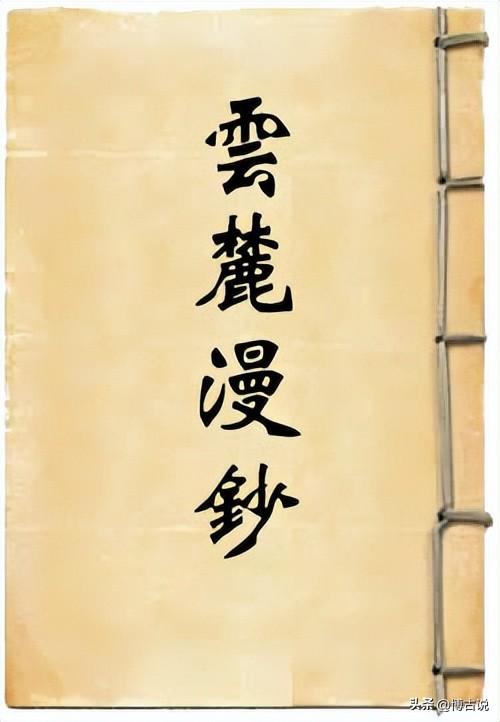 雲麓漫鈔
头条@博古说